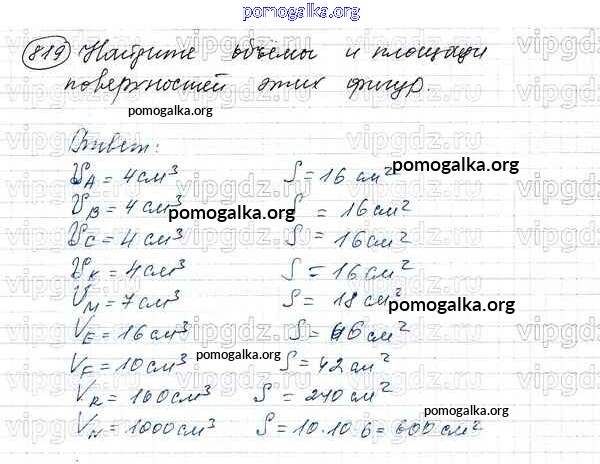 pomogalka.org
819 Найдите объёмы и площади
поверхностей этих фигур.
pomogalka.org
Ответ:
VA = 4 см³ S = 16 см²
pomogalka.org
VB = 4 см³ S = 16 см²
pomogalka.org
VC = 4 см³ S = 16 см²
VK = 4 см³ S = 16 см²
VM = 7 см³ S = 18 см²
pomogalka.org
VE = 16 см³ S = 46 см²
pomogalka.org
VF = 10 см³ S = 42 см²
VR = 160 см³ S = 240 см²
pomogalka.org
VN = 1000 см³ S = 10·10·6 = 600 см²
vipgdz.ru